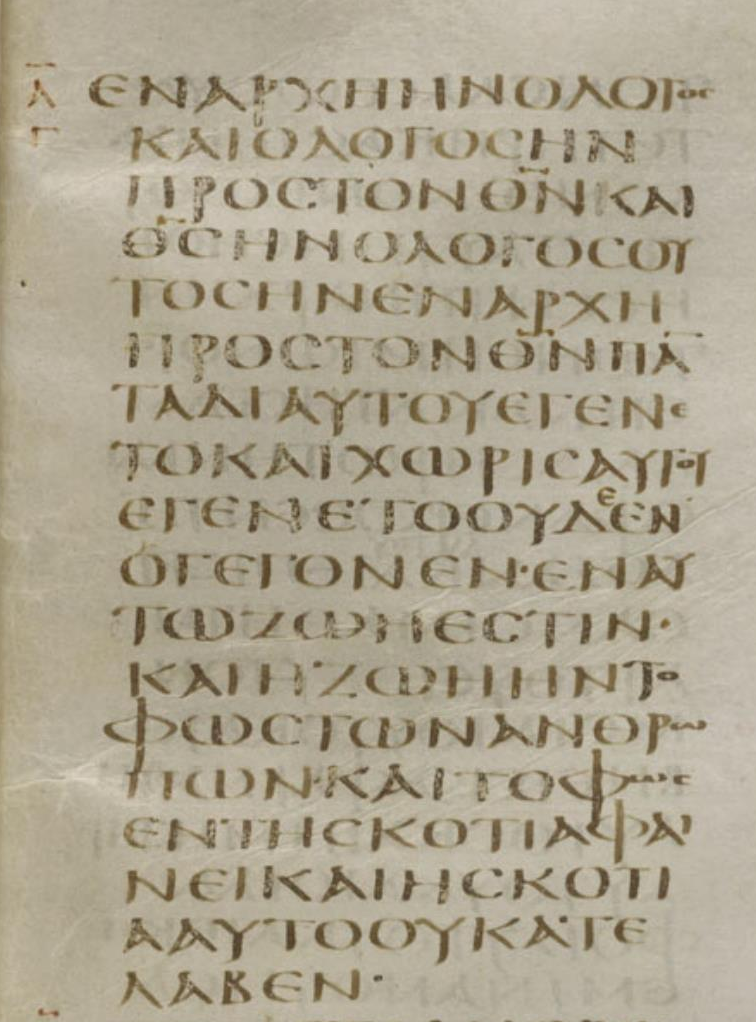 Α ΕΝΑΡΧΗΗΝΟΛΟΓΟС
Γ ΚΑΙΟΛΟΓΟСΗΝ
ΠΡΟСΤΟΝΘ̅Ν̅ΚΑΙ
Θ̅С̅ΗΝΟΛΟΓΟСΟΥ
ΤΟСΗΝΕΝΑΡΧΗ
ΠΡΟСΤΟΝΘ̅Ν̅ΠΑ
ΤΑΔΙΑΥΤΟΥΕΓΕΝΕ
ΤΟΚΑΙΧΩΡΙСΑΥΤΟΥ
ΕΓΕΝΕΤΟΟΥΔΕΕΝ
ΟΓΕΓΟΝΕΝ·ΕΝΑΥ
ΤΩΖΩΗΕСΤΙΝ·
ΚΑΙΗΖΩΗΗΝΤΟ
ΦΩСΤΩΝΑΝΘΡΩ
ΠΩΝ·ΚΑΙΤΟΦΩС
ΕΝΤΗСΚΟΤΙΑΦΑΙ
ΝΕΙΚΑΙΗСΚΟΤΙ
ΑΑΥΤΟΟΥΚΑΤΕ
ΛΑΒΕΝ·